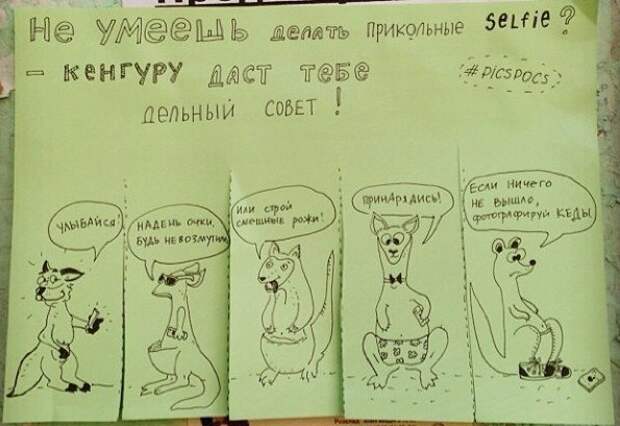 Не УМЕЕШЬ делать прикольные selfie?
- кенгуру даст тебе
дельный совет!
#picspocs
Улыбайся!
Надень очки,
будь невозмутим
Или строй
смешные рожи!
Принарядись!
Если ничего
не вышло,
фотографируй КЕДЫ